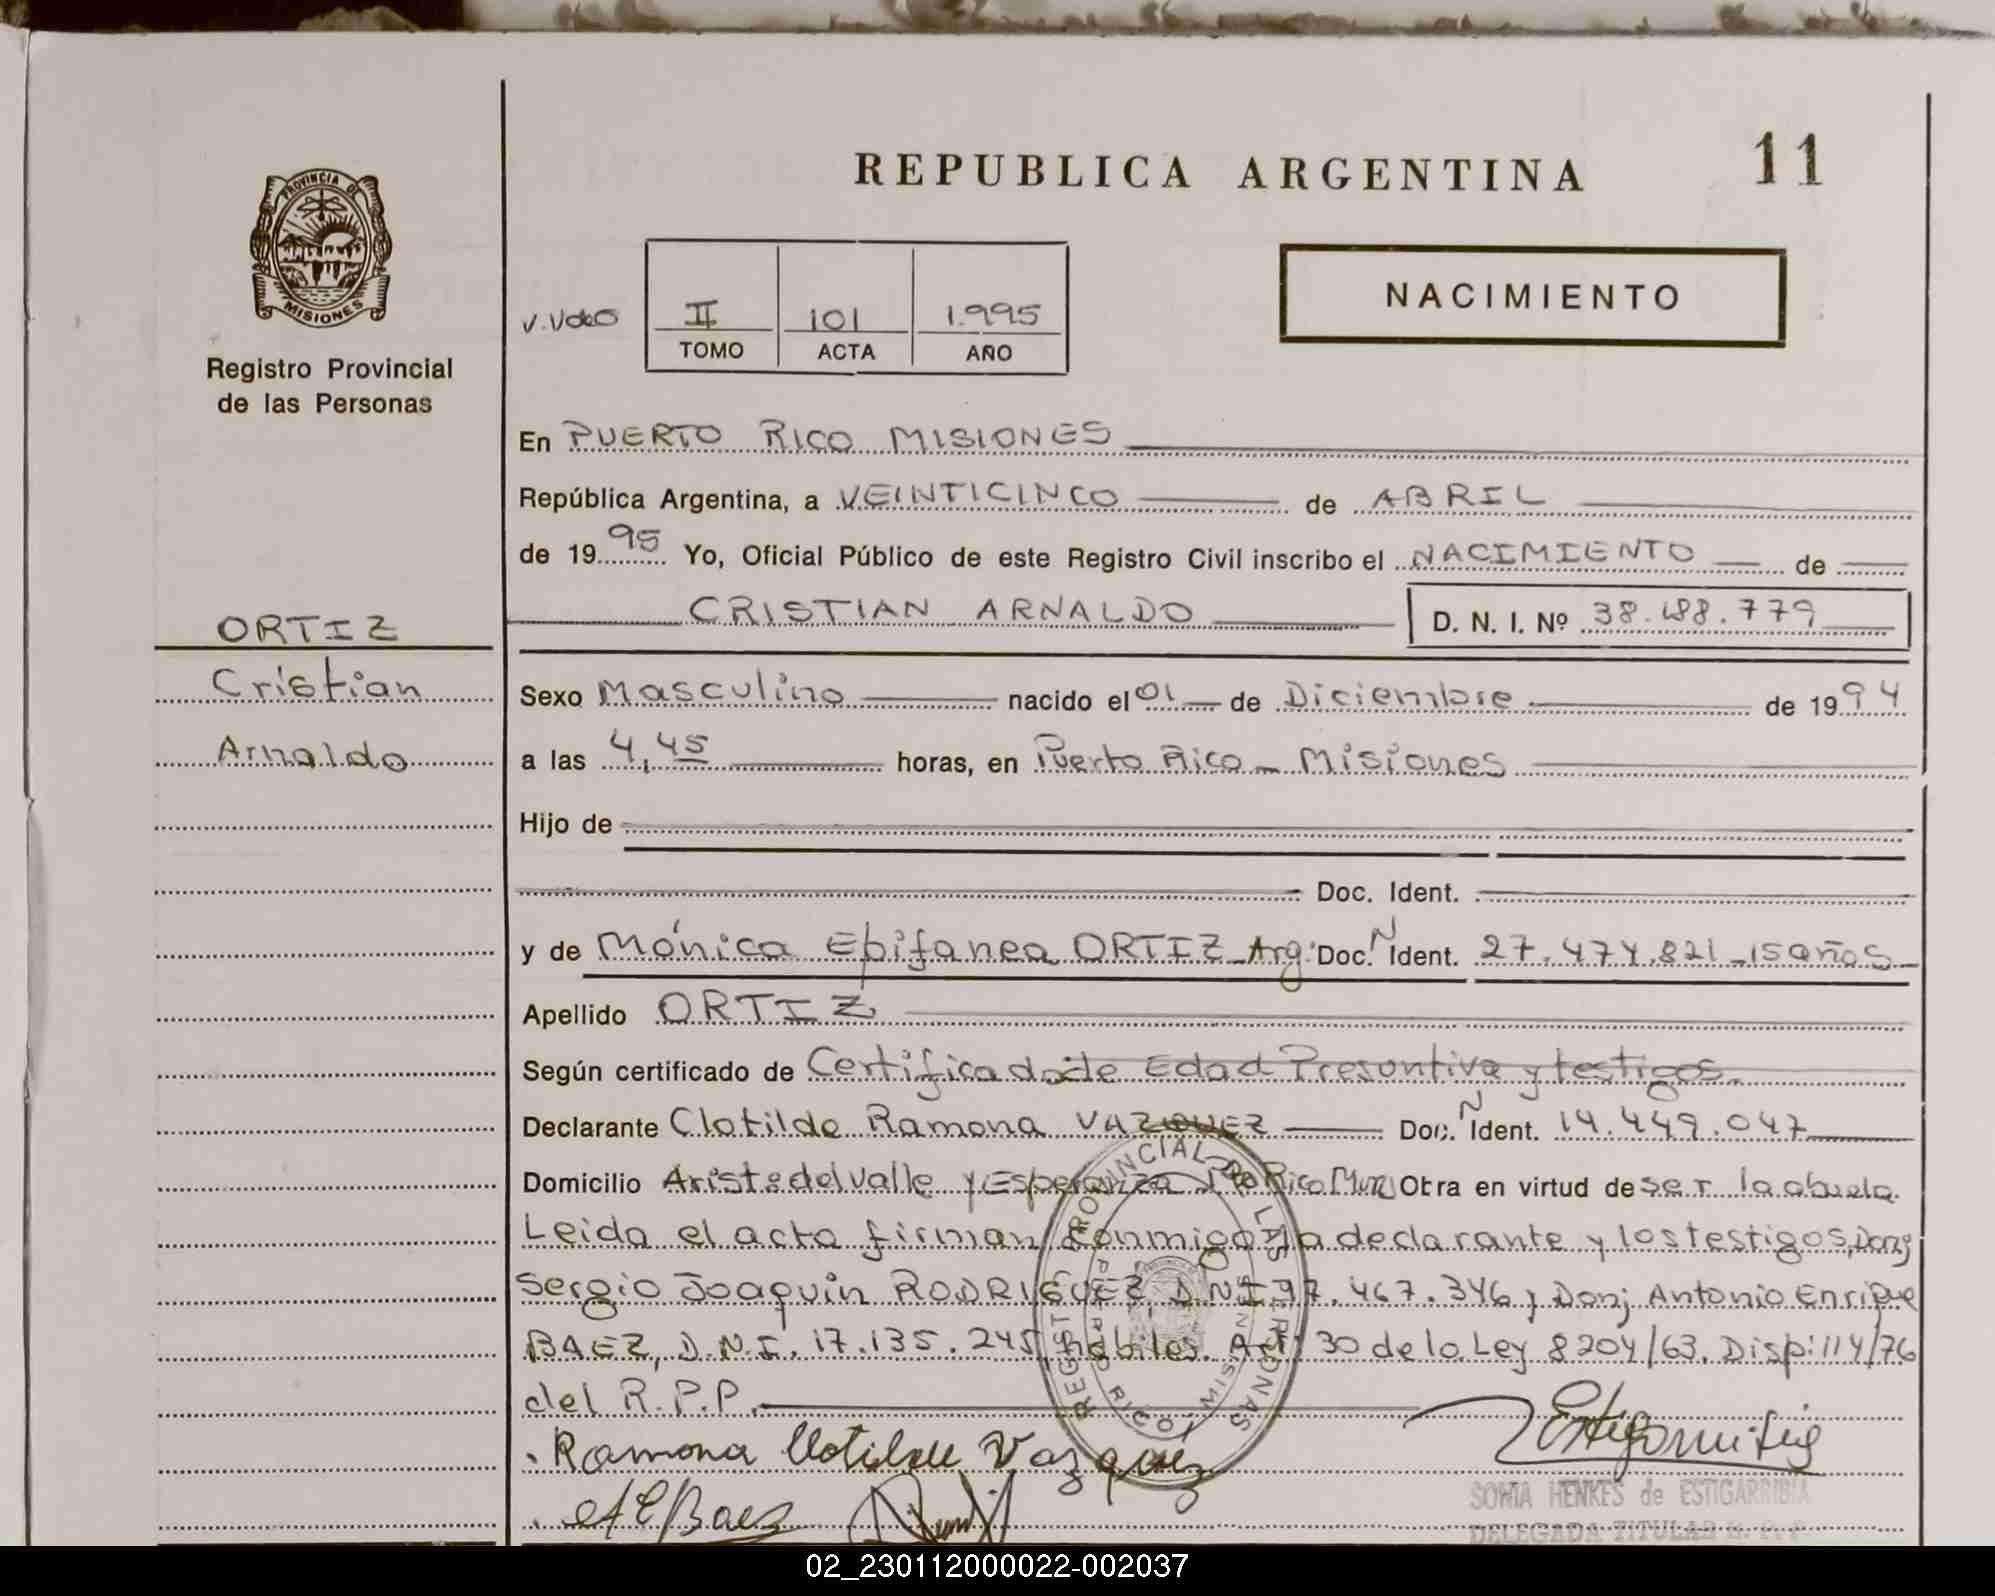 REPUBLICA ARGENTINA
11
PROVINCIA DE
MISIONES
Registro Provincial
de las Personas
II 101 1.995
TOMO ACTA AÑO
NACIMIENTO
En PUERTO RICO MISIONES
República Argentina, a VEINTICINCO de ABRIL
de 1995 Yo, Oficial Público de este Registro Civil inscribo el NACIMIENTO de
CRISTIAN ARNALDO D. N. I. Nº 38.188.779
ORTIZ
Cristian
Arnaldo
Sexo Masculino nacido el 01 de Diciembre de 1994
a las 4,45 horas, en Puerto Rico - Misiones
Hijo de
Doc. Ident.
y de Mónica Epifanea ORTIZ - Arg. Doc. Ident. N 27.474.821 - 15 años
Apellido ORTIZ
Según certificado de Certificado de Edad Presuntiva y testigos.
Declarante Clotilde Ramona VAZQUEZ Doc. Ident. N 14.449.047
Domicilio Arist. del Valle y Esperanza Pto Rico Mnes Obra en virtud de ser la abuela.
Leida el acta firman conmigo la declarante y los testigos, Don;
Sergio Joaquin RODRIGUEZ, D.N.I. 17.467.346, Don; Antonio Enrique
BAEZ, D.N.I. 17.135.245, habiles. Art: 30 de la Ley 8204/63. Disp: 114/76
del R.P.P.
REGIST. PROVINCIAL DE LAS PERSONAS
PTO. RICO - MISIONES
Ramona Clotilde Vazquez
A E Baez
SONIA HENKES de ESTIGARRIBIA
DELEGADA TITULAR R. P. P
02_230112000022-002037